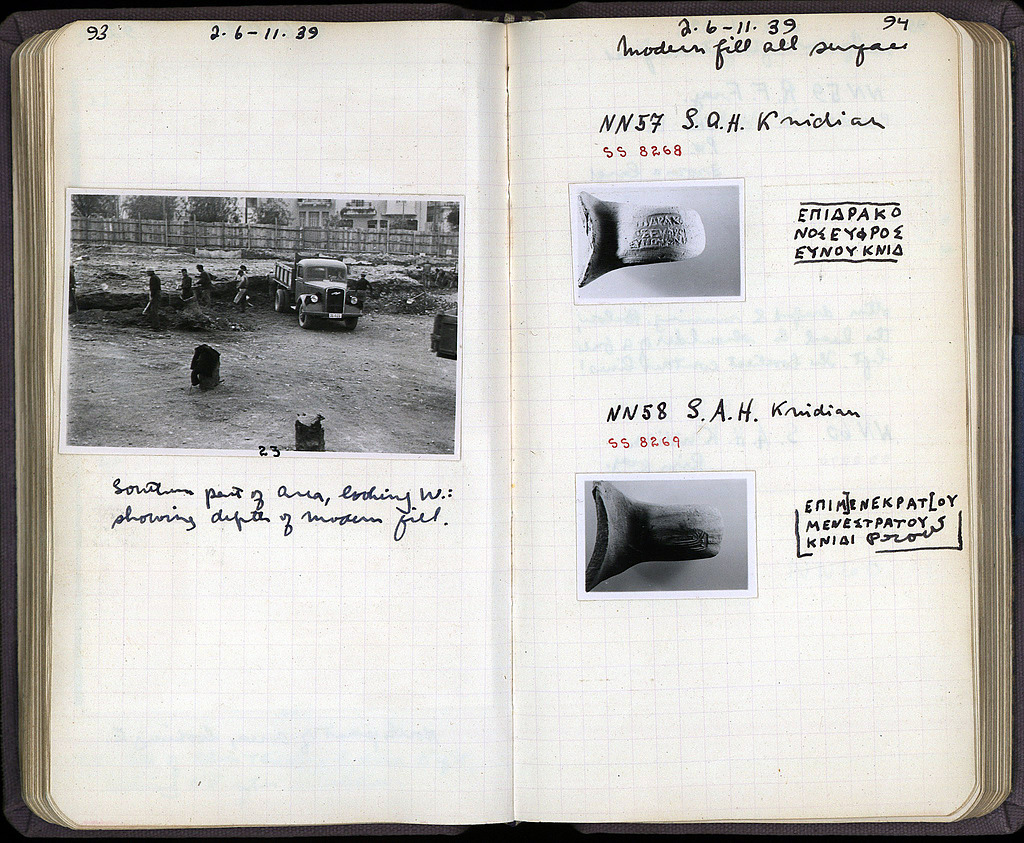 93
2·6-11·39
23
Southern part of area, looking W.:
showing depth of modern fill.
2·6-11·39
94
Modern fill all surface
NN57 S.A.H. Knidian
SS 8268
ΕΠΙΔΡΑΚΟ
ΝΟΣΕΥΦΡΟΣ
ΕΥΝΟΥΚΝΙΔ
NN58 S.A.H. Knidian
SS 8269
ΕΠΙΜ]ΕΝΕΚΡΑΤ[ΟΥ
ΜΕΝΕΣΤΡΑΤΟΥ
ΚΝΙΔΙ prow